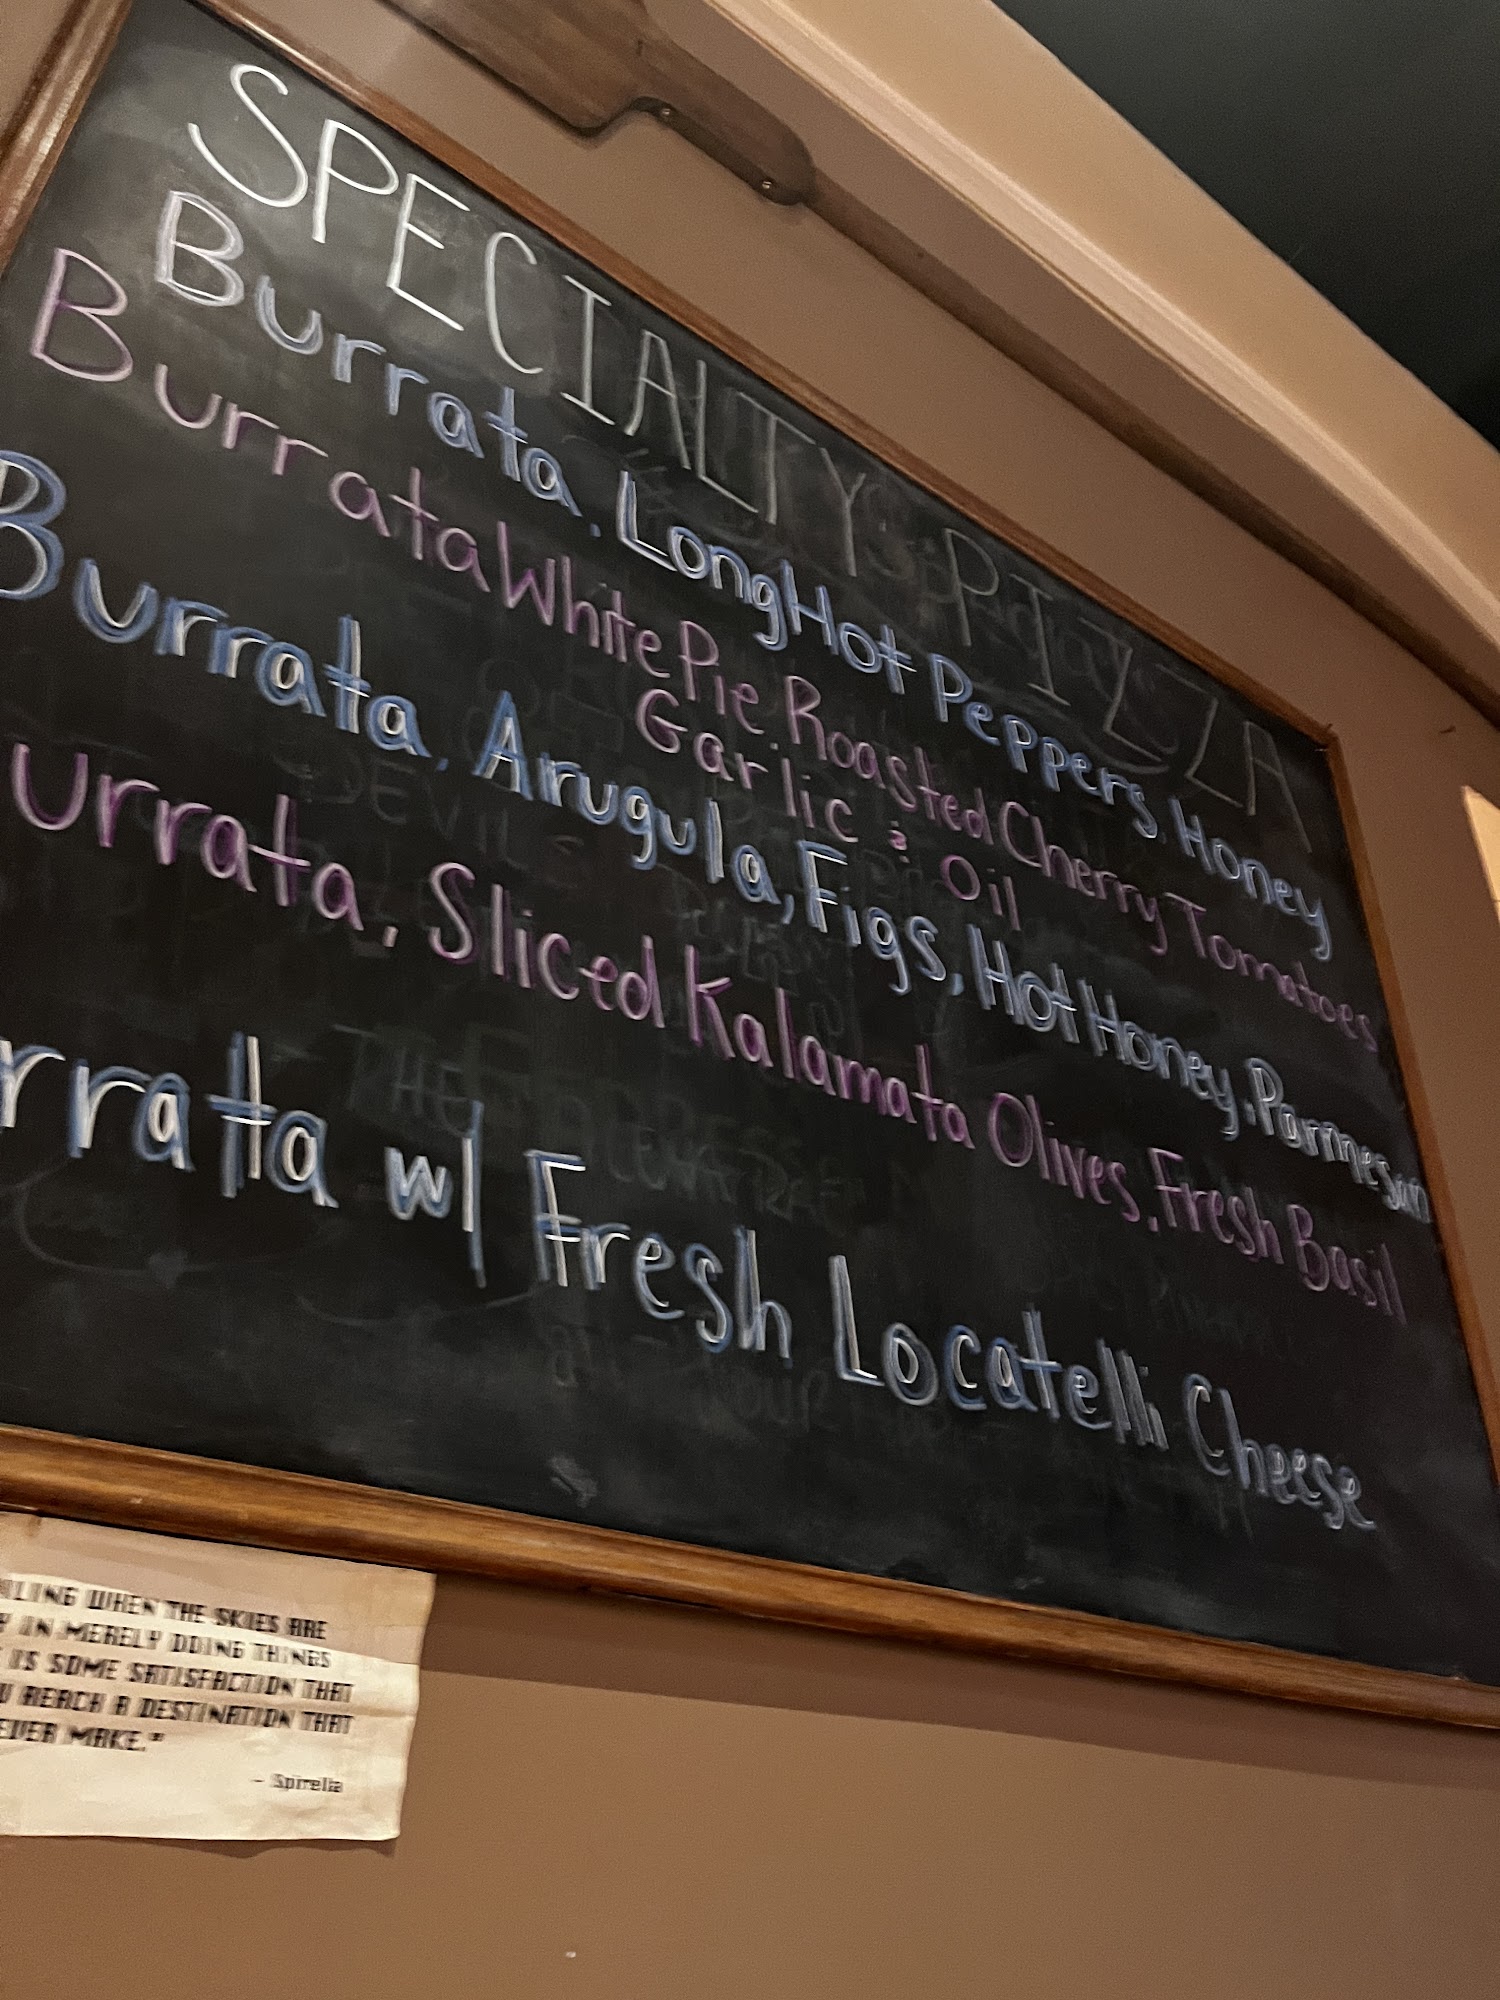 SPECIALTY PIZZA
Burrata, Long Hot Peppers, Honey
Burrata White Pie Roasted Cherry Tomatoes
Garlic & Oil
Burrata, Arugula, Figs, Hot Honey, Parmesan
urrata, Sliced Kalamata Olives, Fresh Basil
rrata w/ Fresh Locatelli Cheese
ILING WHEN THE SKIES ARE
Y IN MERELY DOING THINGS
IS SOME SATISFACTION THAT
U REACH A DESTINATION THAT
EVER MAKE."
- Spirella